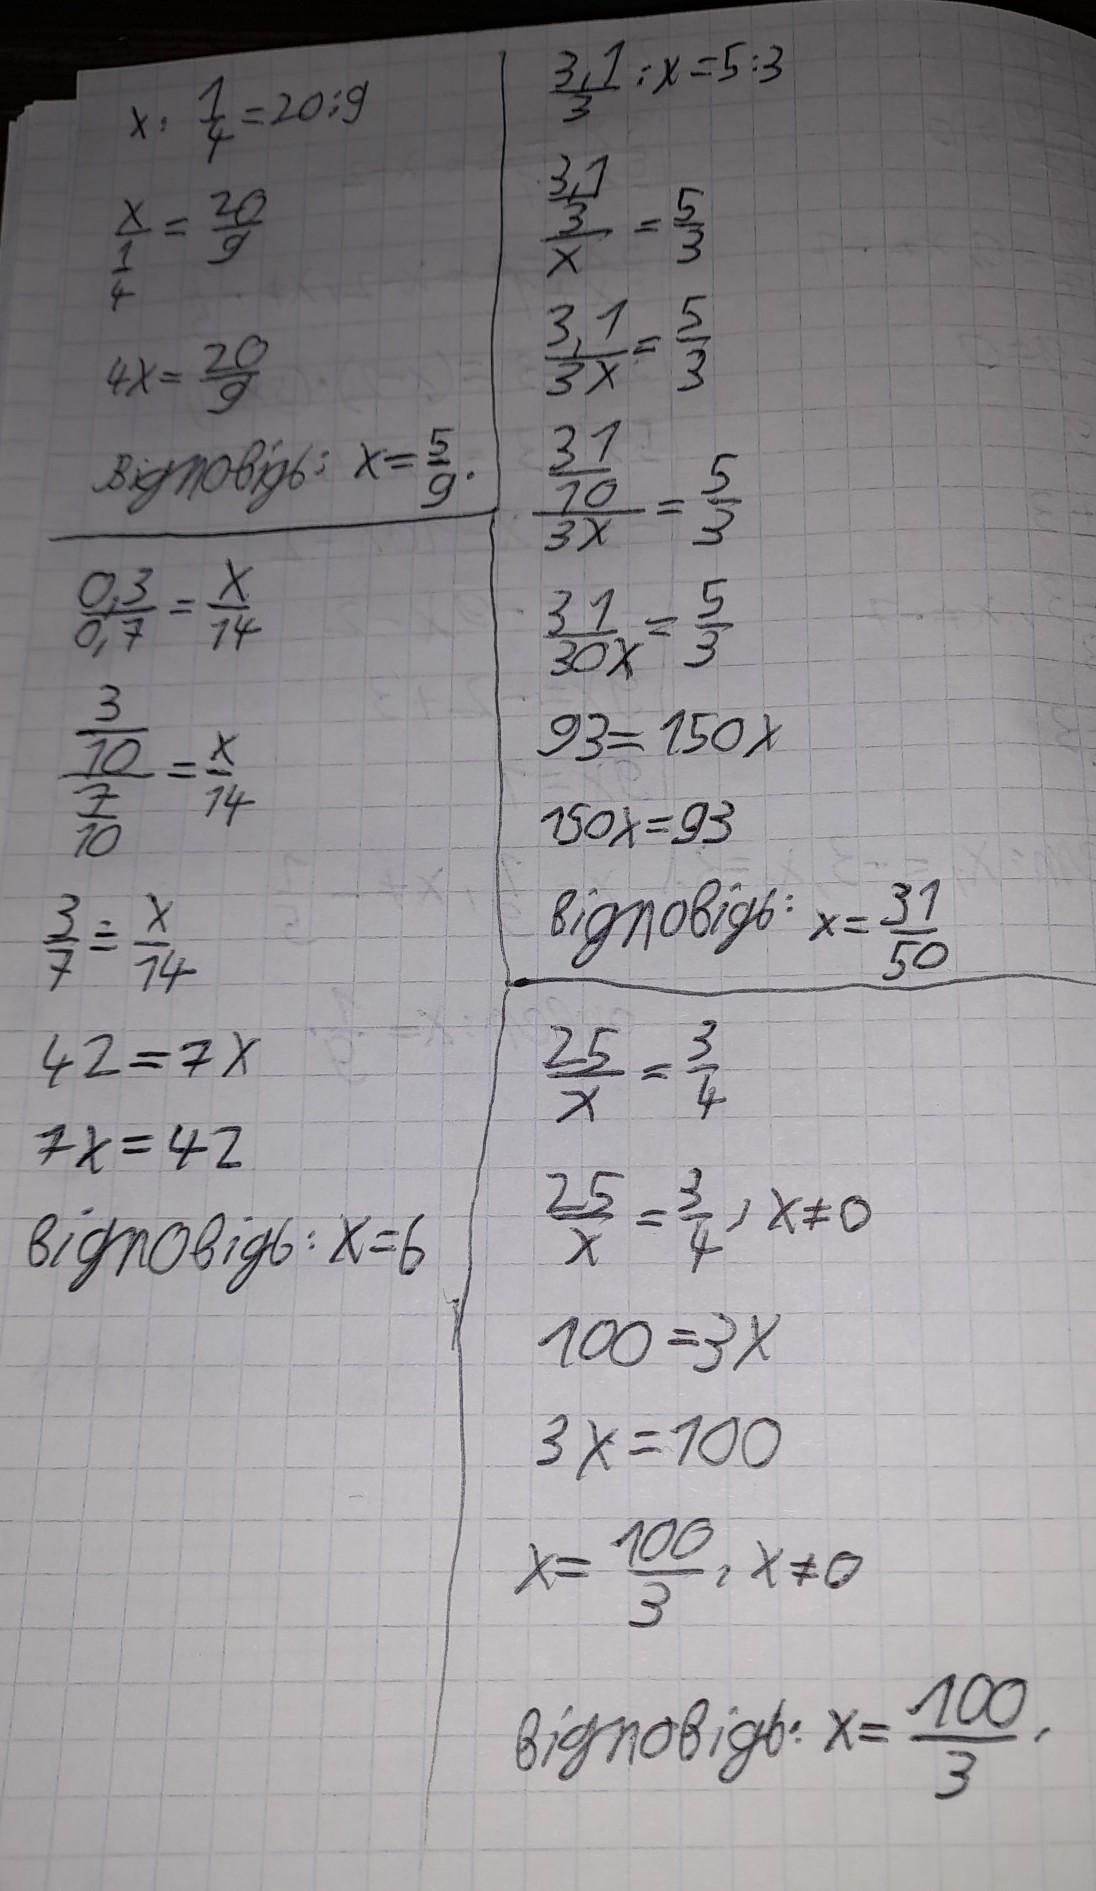 x : 1/4 = 20:9
x/(1/4) = 20/9
4x = 20/9
Відповідь: x = 5/9.
0,3/0,7 = x/14
(3/10)/(7/10) = x/14
3/7 = x/14
42 = 7x
7x = 42
Відповідь: x = 6
3,1/3 : x = 5:3
(3,1/3)/x = 5/3
3,1/3x = 5/3
(31/10)/3x = 5/3
31/30x = 5/3
93 = 150x
150x = 93
Відповідь: x = 31/50
25/x = 3/4
25/x = 3/4, x ≠ 0
100 = 3x
3x = 100
x = 100/3, x ≠ 0
Відповідь: x = 100/3.